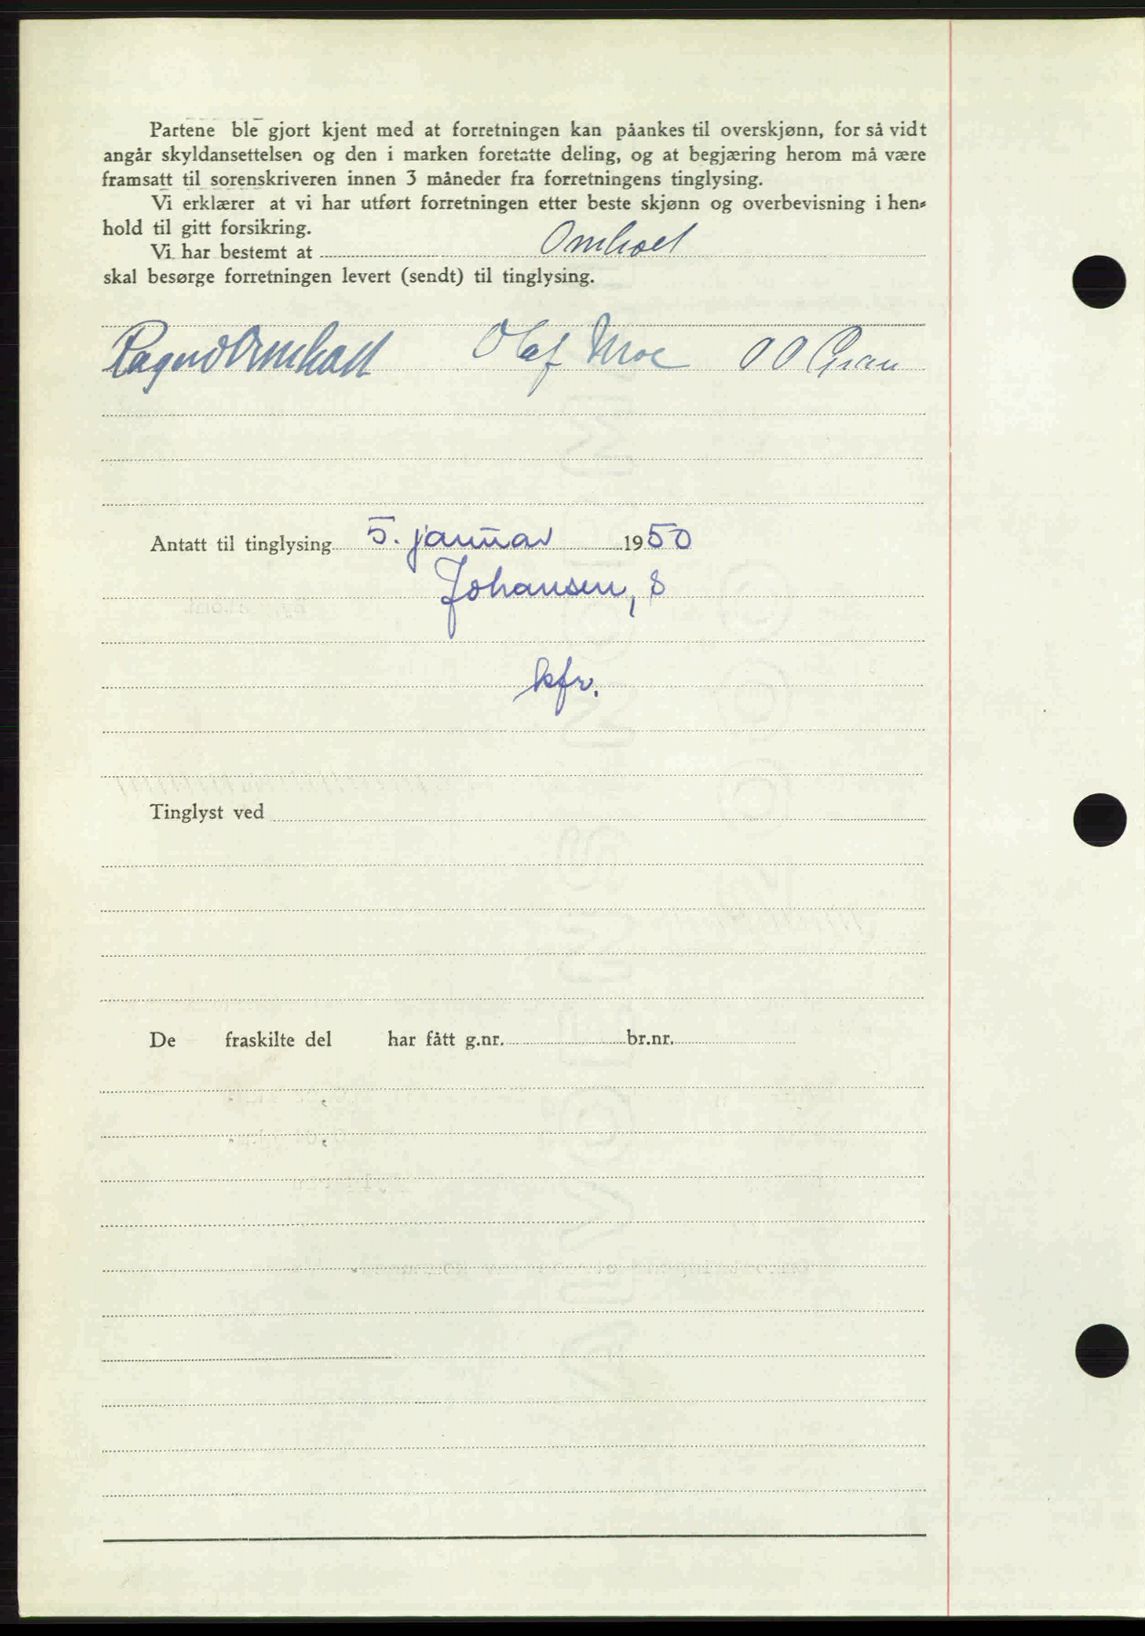 Partene ble gjort kjent med at forretningen kan påankes til overskjønn, for så vidt
angår skyldansettelsen og den i marken foretatte deling, og at begjæring herom må være
framsatt til sorenskriveren innen 3 måneder fra forretningens tinglysing.
Vi erklærer at vi har utført forretningen etter beste skjønn og overbevisning i hen-
hold til gitt forsikring.
Vi har bestemt at Omholt
skal besørge forretningen levert (sendt) til tinglysing.
Ragnv Omholt Olaf Moe O O Gran
Antatt til tinglysing 5. januar 1950
Johansen, S
kfr.
Tinglyst ved
De fraskilte del har fått g.nr. br.nr.